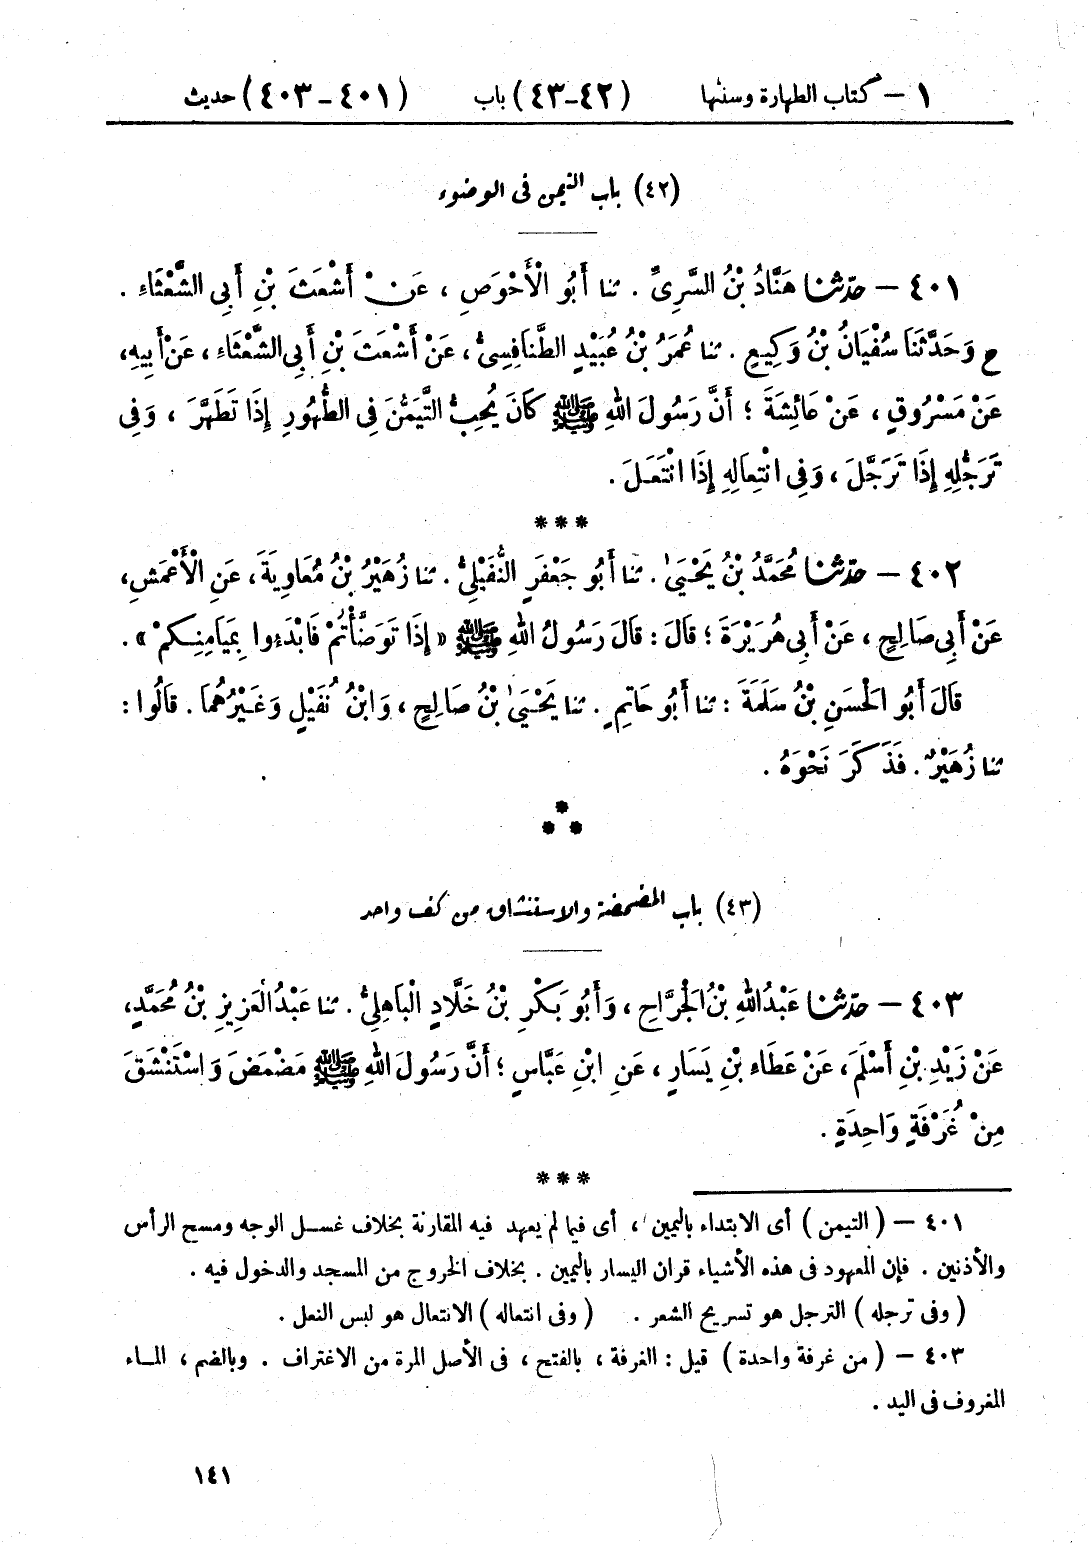 ١ – كتاب الطهارة وسننها (٤٢–٤٣) باب (٤٠١–٤٠٣) حديث
(٤٢) باب التيمن فى الوضوء
٤٠١ – حدّثنا هَنَّادُ بْنُ السَّرِىِّ . ثنا أَبُو الْأَحْوَصِ ، عَنْ أَشْعَثَ بْنِ أَبِى الشَّعْثَاءِ .
ح وَحَدَّثَنَا سُفْيَانُ بْنُ وَكِيعٍ . ثنا عُمَرُ بْنُ عُبَيْدٍ الطَّنَافِسِىُّ ، عَنْ أَشْعَثَ بْنِ أَبِى الشَّعْثَاءِ ، عَنْ أَبِيهِ ،
عَنْ مَسْرُوقٍ ، عَنْ عَائِشَةَ ؛ أَنَّ رَسُولَ اللهِ ﷺ كَانَ يُحِبُّ التَّيَمُّنَ فِى الطُّهُورِ إِذَا تَطَهَّرَ ، وَفِى
تَرَجُّلِهِ إِذَا تَرَجَّلَ ، وَفِى انْتِعَالِهِ إِذَا انْتَعَلَ .
***
٤٠٢ – حدّثنا مُحَمَّدُ بْنُ يَحْيَىٰ . ثنا أَبُو جَعْفَرٍ النُّفَيْلِىُّ . ثنا زُهَيْرُ بْنُ مُعَاوِيَةَ ، عَنِ الْأَعْمَشِ ،
عَنْ أَبِى صَالِحٍ ، عَنْ أَبِى هُرَيْرَةَ ؛ قَالَ : قَالَ رَسُولُ اللهِ ﷺ « إِذَا تَوَضَّأْتُمْ فَابْدَءُوا بِمَيَامِنِكُمْ » .
قَالَ أَبُو الْحَسَنِ بْنُ سَلَمَةَ : ثنا أَبُو حَاتِمٍ . ثنا يَحْيَىٰ بْنُ صَالِحٍ ، وَابْنُ نُفَيْلٍ وَغَيْرُهُمَا . قَالُوا :
ثنا زُهَيْرٌ . فَذَكَرَ نَحْوَهُ .
***
(٤٣) باب المضمضة والاستنشاق من كف واحد
٤٠٣ – حدّثنا عَبْدُ اللهِ بْنُ الْجَرَّاحِ ، وَأَبُو بَكْرِ بْنُ خَلَّادٍ الْبَاهِلِىُّ . ثنا عَبْدُ الْعَزِيزِ بْنُ مُحَمَّدٍ ،
عَنْ زَيْدِ بْنِ أَسْلَمَ ، عَنْ عَطَاءِ بْنِ يَسَارٍ ، عَنِ ابْنِ عَبَّاسٍ ؛ أَنَّ رَسُولَ اللهِ ﷺ مَضْمَضَ وَاسْتَنْشَقَ
مِنْ غُرْفَةٍ وَاحِدَةٍ .
***
٤٠١ – ( التيمن ) أى الابتداء باليمين ، أى فيما لم يعهد فيه المقارنة بخلاف غسل الوجه ومسح الرأس
والأذنين . فإن المعهود فى هذه الأشياء قران اليسار باليمين . بخلاف الخروج من المسجد والدخول فيه .
( وفى ترجله ) الترجل هو تسريح الشعر . ( وفى انتعاله ) الانتعال هو لبس النعل .
٤٠٣ – ( من غرفة واحدة ) قيل : الغرفة ، بالفتح ، فى الأصل المرة من الاغتراف . وبالضم ، الماء
المغروف فى اليد .
١٤١